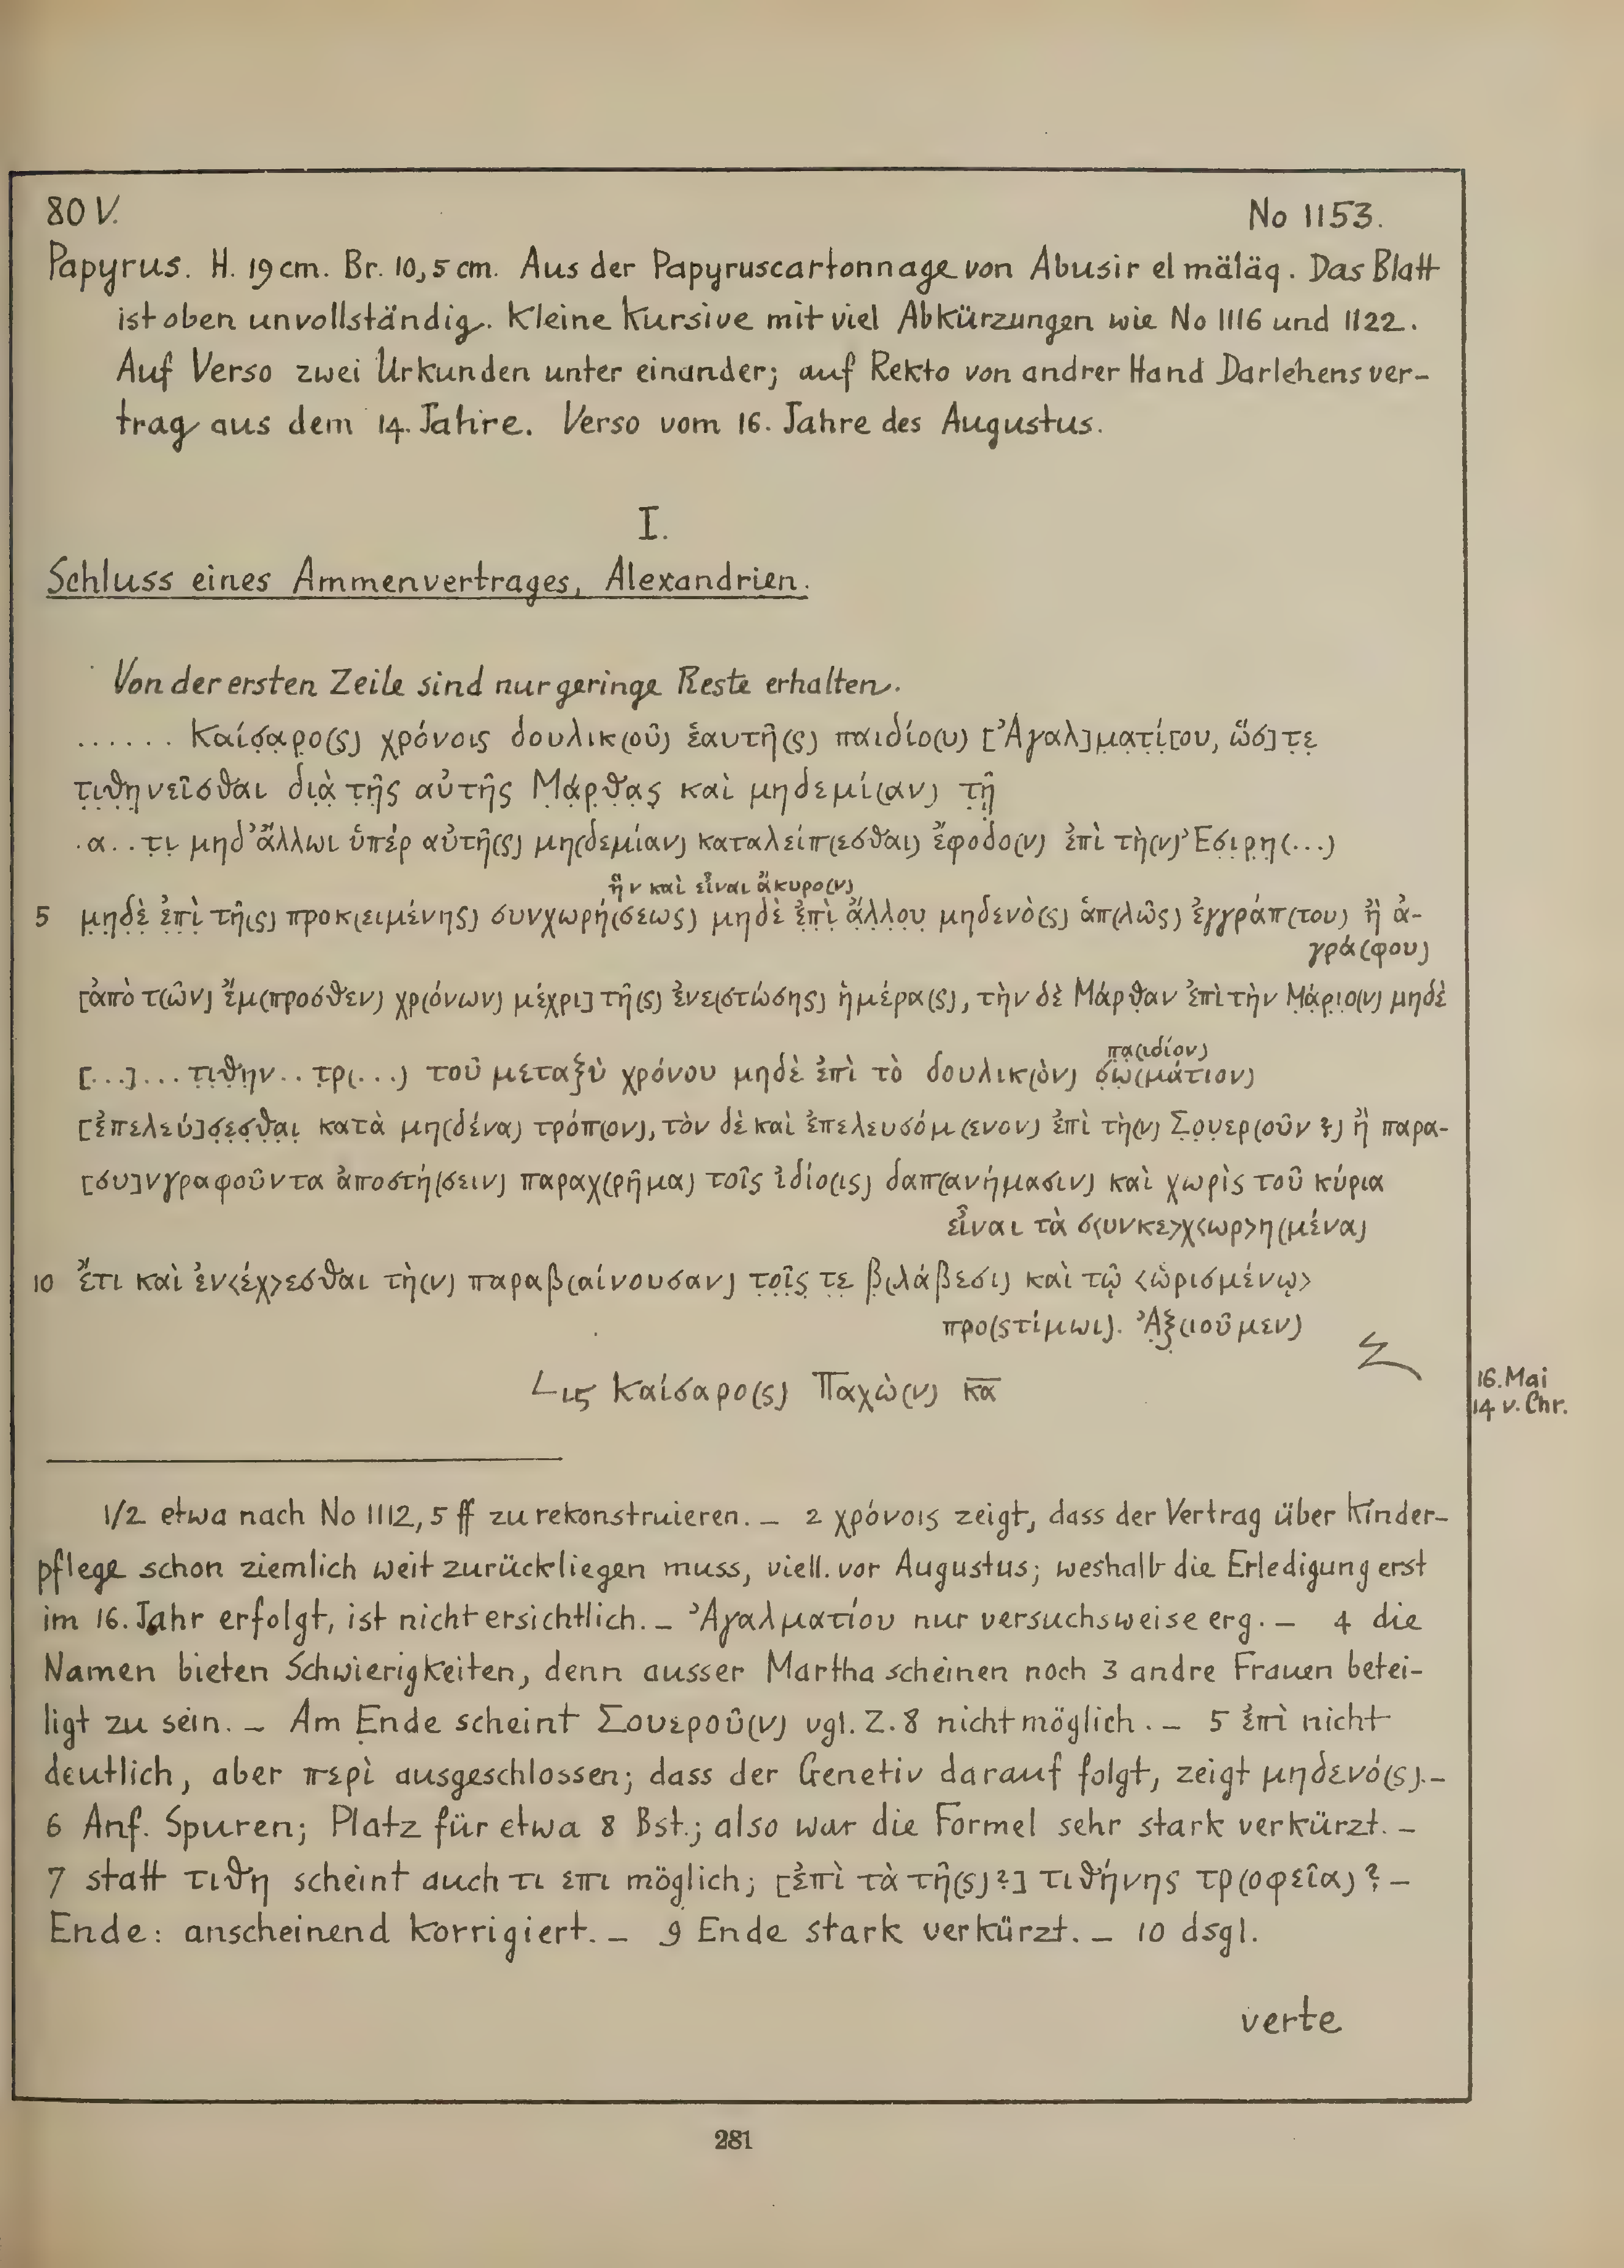 80 V. No 1153.
Papyrus. H. 19 cm. Br. 10,5 cm. Aus der Papyruscartonnage von Abusir el mäläq. Das Blatt
ist oben unvollständig. Kleine Kursive mit viel Abkürzungen wie No 1116 und 1122.
Auf Verso zwei Urkunden unter einander; auf Rekto von andrer Hand Darlehensver-
trag aus dem 14. Jahre. Verso vom 16. Jahre des Augustus.
I.
Schluss eines Ammenvertrages, Alexandrien.
Von der ersten Zeile sind nur geringe Reste erhalten.
...... Καίσ̣α̣ρ̣ο(ς) χρόνοις δουλικ(οῦ) ἑαυτῆ(ς) παιδίο(υ) [Ἀγαλ]μ̣α̣τ̣ί̣[ου, ὥσ]τ̣ε̣
τ̣ι̣θ̣η̣νεῖσθαι δι̣ὰ̣ τ̣ῆ̣ς αὐτῆς Μ̣ά̣ρ̣θ̣α̣ς̣ καὶ μηδεμί(αν) τ̣ῇ̣
.α..τ̣ι̣ μηδ’ ἄλλωι ὑπέρ αὐτῆ(ς) μη(δεμίαν) καταλείπ(εσθαι) ἔφοδο(ν) ἐπὶ τὴ(ν) Ἐσ̣ι̣ρ̣η̣(...)
ἣν καὶ εἶναι ἄκυρο(ν)
5 μ̣η̣δ̣ὲ̣ ἐ̣π̣ὶ̣ τῆ(ς) προκ(ειμένης) συνχωρή(σεως) μηδὲ ἐ̣π̣ὶ̣ ἄ̣λ̣λ̣ο̣υ̣ μηδενὸ(ς) ἁπ(λῶς) ἐγγράπ(του) ἢ ἀ-
γρά(φου)
[ἀπὸ τ(ῶν) ἔμ(προσθεν) χρ(όνων) μέχρι] τῆ(ς) ἐνε(στώσης) ἡμέρα(ς), τὴν δὲ Μάρθ̣αν ἐπὶ τὴν Μ̣ά̣ρ̣ι̣ο(ν) μηδὲ
πα̣(ιδίον)
[...]...τ̣ι̣θ̣η̣ν..τ̣ρ̣(...) τοῦ μεταξὺ χρόνου μηδὲ ἐπὶ τὸ δουλικ(ὸν) σ̣ω̣(μάτιον)
[ἐπελεύ]σ̣ε̣σ̣θ̣α̣ι̣ κατὰ μη(δένα) τρόπ(ον), τὸν δὲ καὶ ἐπελευσόμ(ενον) ἐπὶ τὴ(ν) Σ̣ο̣υ̣ερ(οῦν?) ἢ παρα-
[συ]νγραφοῦντα ἀποστή(σειν) παραχ(ρῆμα) τοῖς ἰδίο(ις) δαπ(ανήμασιν) καὶ χωρὶς τοῦ κύρια
εἶναι τὰ σ<υνκε>χ<ωρ>η(μένα)
10 ἔτι καὶ ἐν<έχ>εσθαι τὴ(ν) παραβ(αίνουσαν) τ̣ο̣ῖ̣ς̣ τ̣ε̣ β̣(λάβεσι) καὶ τῷ <ὡρισμένῳ>
προ(στίμωι). Ἀ̣ξ̣(ιοῦμεν)
Lις Καίσαρο(ς) Παχὼ(ν) κ̅α̅
16. Mai
14 v. Chr.
1/2 etwa nach No 1112, 5 ff zu rekonstruieren. – 2 χρόνοις zeigt, dass der Vertrag über Kinder-
pflege schon ziemlich weit zurückliegen muss, viell. vor Augustus; weshalb die Erledigung erst
im 16. Jahr erfolgt, ist nicht ersichtlich. – Ἀγαλματίου nur versuchsweise erg. – 4 die
Namen bieten Schwierigkeiten, denn ausser Martha scheinen noch 3 andre Frauen betei-
ligt zu sein. – Am Ende scheint Σουεροῦ(ν) vgl. Z. 8 nicht möglich. – 5 ἐπὶ nicht
deutlich, aber περὶ ausgeschlossen; dass der Genetiv darauf folgt, zeigt μηδενό(ς). –
6 Anf. Spuren; Platz für etwa 8 Bst.; also war die Formel sehr stark verkürzt. –
7 statt τιθη scheint auch τι επι möglich; [ἐπὶ τὰ τῆ(ς)?] τιθήνης τρ(οφεῖα)? –
Ende: anscheinend korrigiert. – 9 Ende stark verkürzt. – 10 dsgl.
verte
281